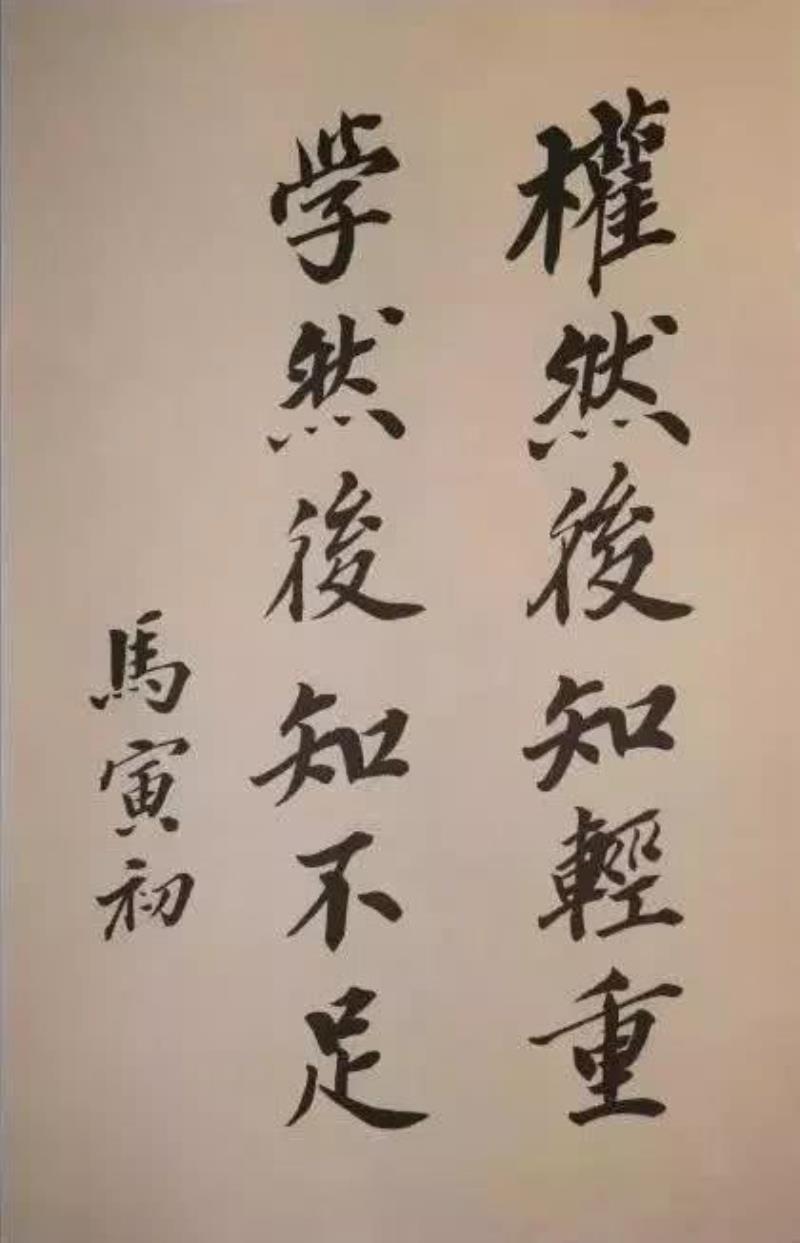 權然後知輕重
学然後知不足
馬寅初